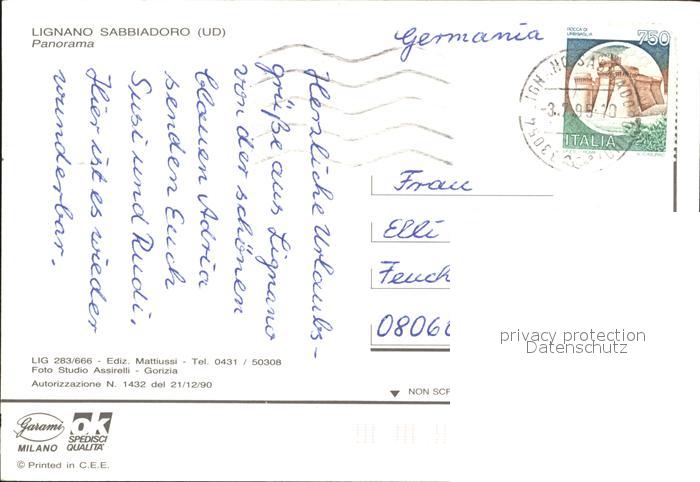 LIGNANO SABBIADORO (UD)
Panorama
Germania
ROCCA DI URBISAGLIA
750
ITALIA
-3.7.95-10
33054
Herzliche Urlaubs-
grüße aus Lignano
von der schönen
blauen Adria
senden Euch
Susi und Rudi.
Hier ist es wieder
wunderbar.
Frau
Elli
Feuch
0806
privacy protection
Datenschutz
LIG 283/666 - Ediz. Mattiussi - Tel. 0431 / 50308
Foto Studio Assirelli - Gorizia
Autorizzazione N. 1432 del 21/12/90
NON SCR
Garami
MILANO
ok
SPEDISCI
QUALITÀ
© Printed in C.E.E.